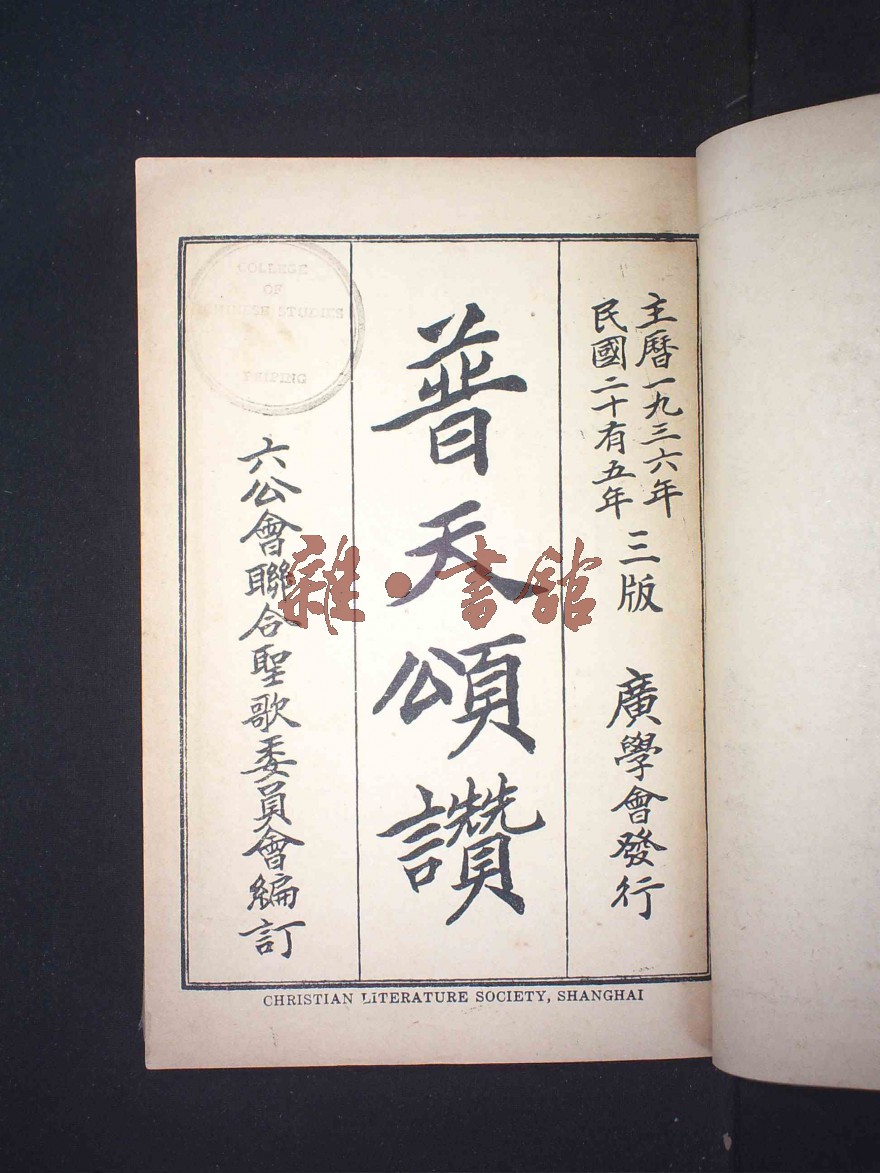 主曆一九三六年
民國二十有五年
三版
廣學會發行
普天頌讚
六公會聯合聖歌委員會編訂
COLLEGE
OF
CHINESE STUDIES
PEIPING
雜·書館
CHRISTIAN LITERATURE SOCIETY, SHANGHAI